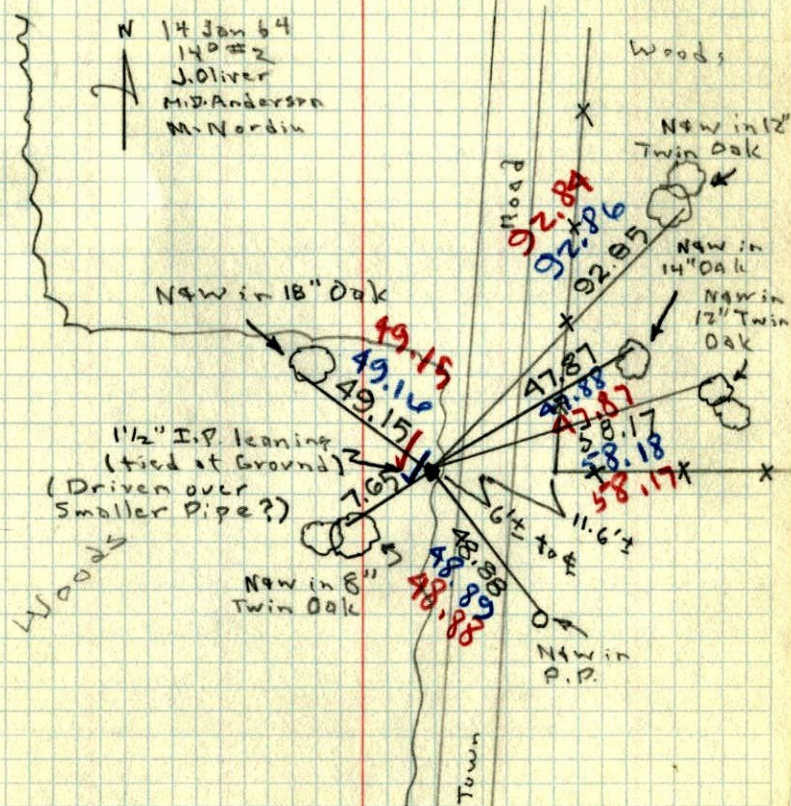 N
14 Jan 64
14° #2
J. Oliver
M.D. Anderson
M. Nordin
Woods
N&w in 12"
Twin Oak
Road
92.84
92.86
92.85
N&w in
14" Oak
N&w in
12" Twin
Oak
N&w in 18" Oak
49.15
49.16
49.15
47.87
47.88
47.87
58.17
58.18
58.17
1 1/2" I.P. leaning
(tied at Ground)
(Driven over
Smaller Pipe?)
7.65
6'± to ℄
11.6'±
Woods
N&w in 8"
Twin Oak
48.88
48.89
48.88
N&w in
P.P.
Town